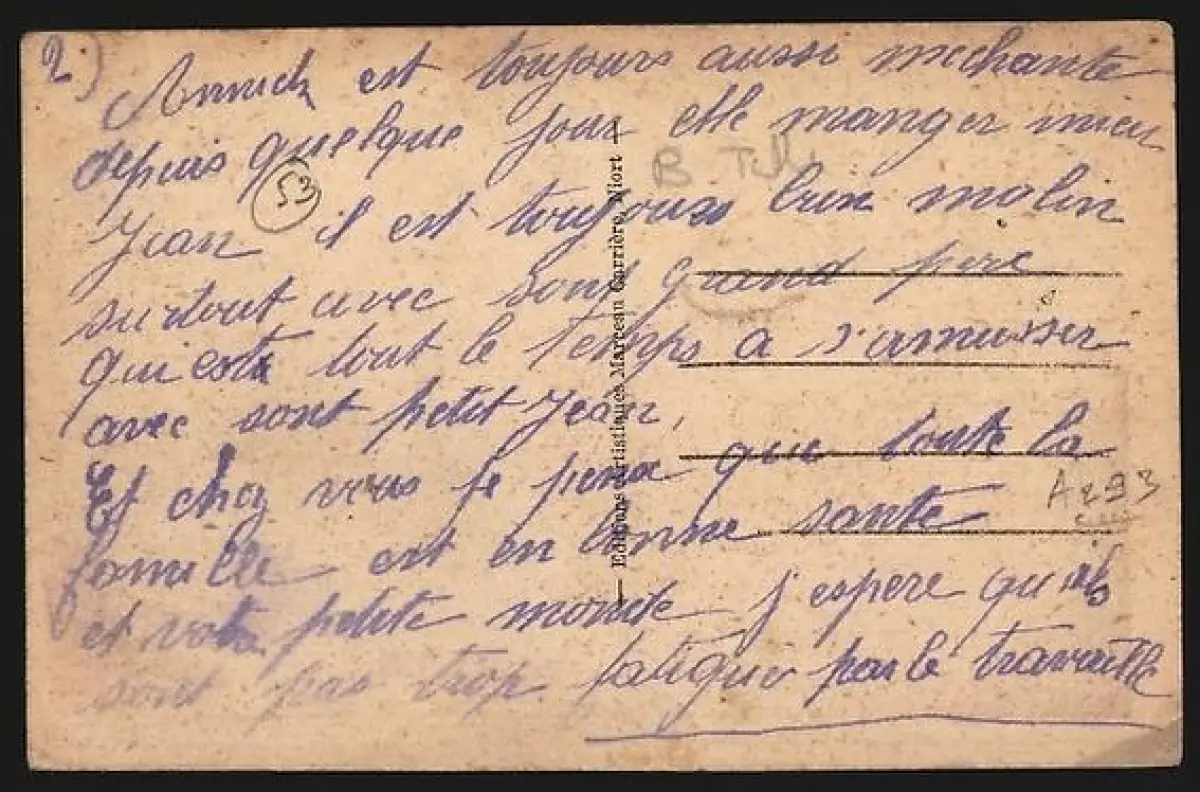 2)
Annick est toujours aussi méchante
depuis quelque jour elle manger mieu
Jean il est toujours bien malin
surtout avec sont grand pere
qui est tout le temps a s'amusser
avec sont petit Jean,
Et chez vous je pense que toute la
famille est en bonne santé
et votre petite monde j'espere qu'ils
sont pas trop fatiguer par le travaille
53
A 293
— Editions artistiques Marceau Carrière, Niort —